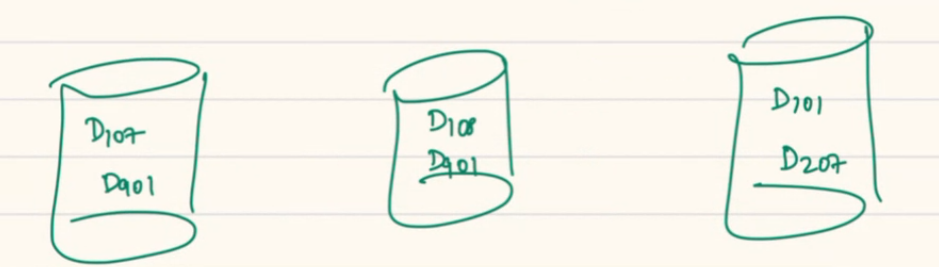 D107
D901
D108
D901
D101
D207